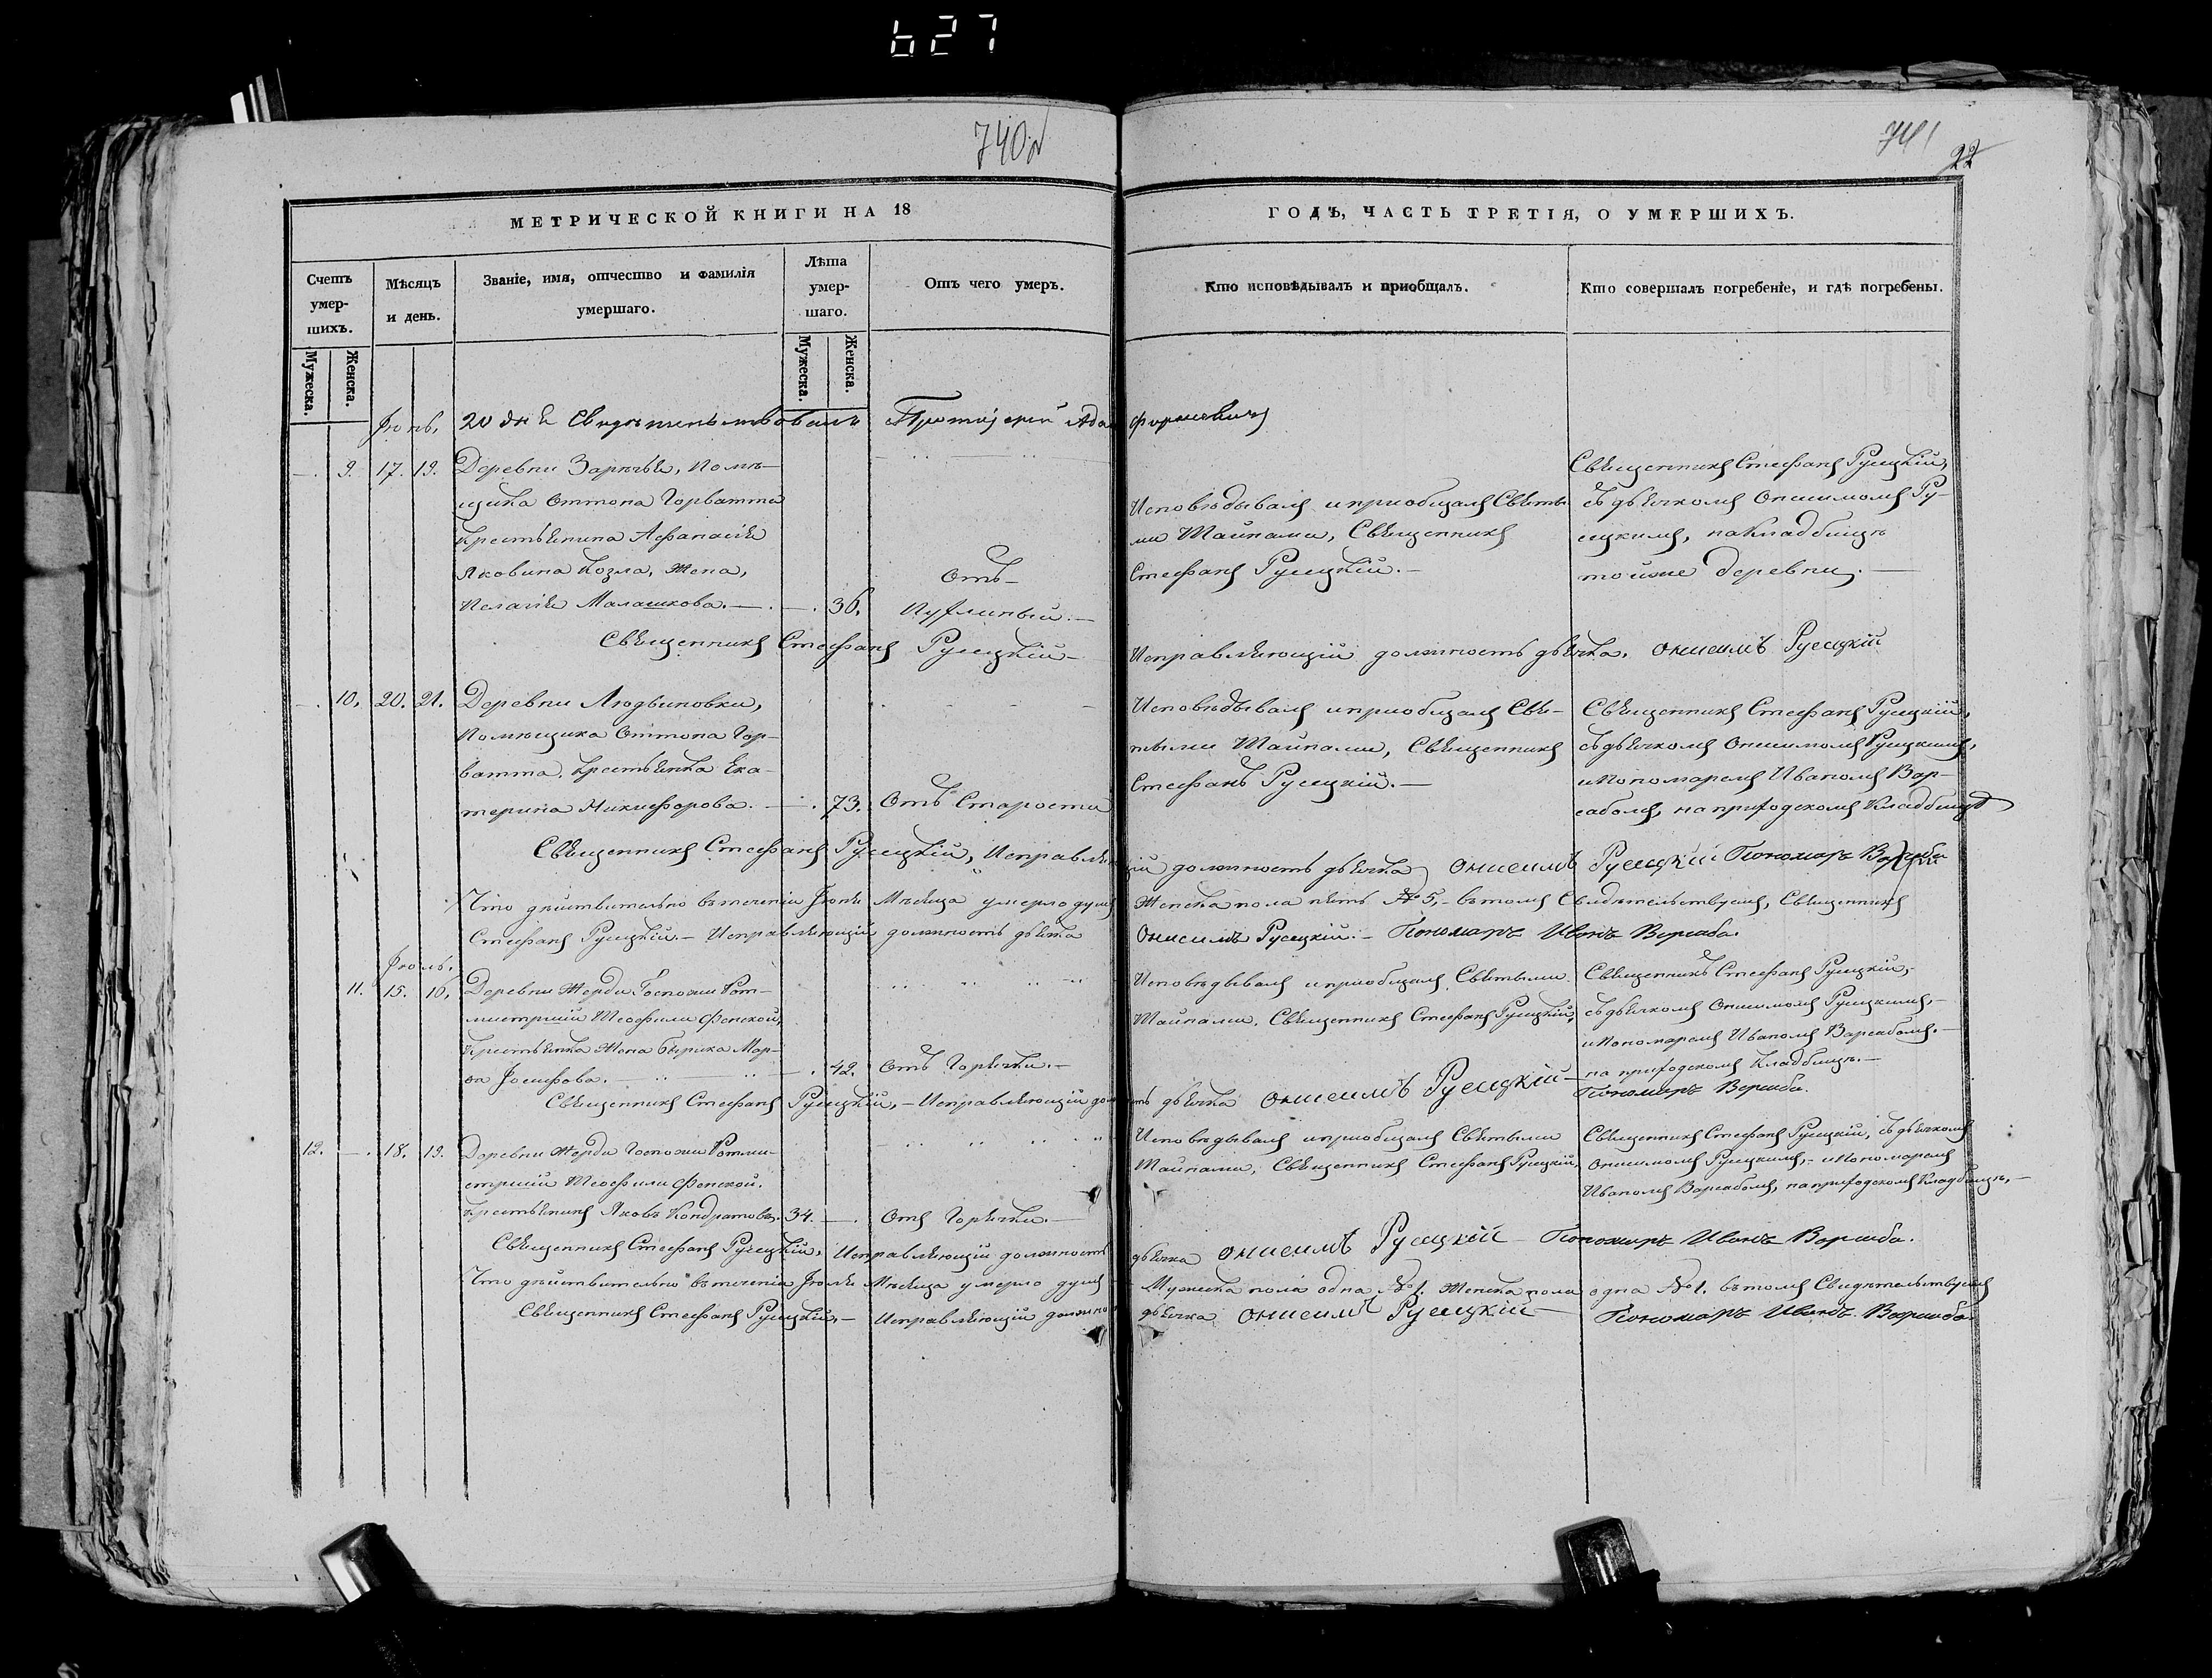 627
740
741
22
МЕТРИЧЕСКОЙ КНИГИ НА 18
ГОДЪ, ЧАСТЬ ТРЕТІЯ, О УМЕРШИХЪ.
Счетъ умер-шихъ.
Мужеска.
Женска.
Мѣсяцъ и день.
Званіе, имя, отчество и фамилія умершаго.
Лѣта умер-шаго.
Мужеска.
Женска.
Отъ чего умеръ.
Кто исповѣдывалъ и приобщалъ.
Кто совершалъ погребеніе, и гдѣ погребены.
Іюнь, 20 дня Свидѣтельствовалъ Протоіерей
9. 17. 19. Деревни Зарѣчья, Помѣ-
щика Оттона Горватта
Крестьянина Афанасія
Яковина Козла, Жена,
Пелагія Малашкова. — 36.
Отъ
Исповѣдывалъ и приобщалъ Святы-
ми Тайнами, Священникъ
Стефанъ Русецкій. —
Священникъ Стефанъ Русецкій,
съ дьячкомъ Онисимомъ Ру-
сецкимъ, на Кладбищѣ
той же деревни. —
Священникъ Стефанъ Русецкій — Исправляющій должность дьячка, Онисимъ Русецкій
10. 20. 21. Деревни Людвиновки,
Помѣщика Оттона Гор-
ватта, Крестьянка Ека-
терина Никифорова. — 73. Отъ Старости
Исповѣдывалъ и приобщалъ Свя-
тыми Тайнами, Священникъ
Стефанъ Русецкій. —
Священникъ Стефанъ Русецкій,
съ дьячкомъ Онисимомъ Русецкимъ,
и Пономаремъ Иваномъ Вар-
сабомъ, на приходскомъ Кладбищѣ
Священникъ Стефанъ Русецкій, Исправляющій должность дьячка Онисимъ Русецкій Пономаръ
Что дѣйствительно въ теченіи Іюня Мѣсяца умерло душъ Женска пола пять № 5, — въ томъ Свидѣтельствуемъ, Священникъ
Стефанъ Русецкій. — Исправляющій должность дьячка Онисимъ Русецкій. — Пономаръ Иванъ Варсаба.
Іюль,
11. 15. 16. Деревни Жерди Госпожи Рот-
мистрши Теофили Фенской,
Крестьянка Жена Мар-
Іосифова. — 42. Отъ Горячки. —
Исповѣдывалъ и приобщалъ Святыми
Тайнами, Священникъ Стефанъ Русецкій,
Священникъ Стефанъ Русецкій, —
съ дьячкомъ Онисимомъ Русецкимъ, —
и Пономаремъ Иваномъ Варсабомъ. —
на приходскомъ Кладбищѣ. —
Священникъ Стефанъ Русецкій, — Исправляющій дьячка Онисимъ Русецкій — Пономаръ Варсаба.
12. — 18. 19. Деревни Жерди Госпожи Ротми-
стрши Теофили Фенской.
Крестьянинъ Яковъ Кондратовъ. 34. — Отъ Горячки. —
Исповѣдывалъ и приобщалъ Святыми
Тайнами, Священникъ Стефанъ Русецкій,
Священникъ Стефанъ Русецкій, съ дьячкомъ
Онисимомъ Русецкимъ, — и Пономаремъ
Иваномъ Варсабомъ, на приходскомъ Кладбищѣ, —
Священникъ Стефанъ Русецкій, Исправляющій должность дьячка Онисимъ Русецкій — Пономаръ Иванъ Варсаба.
Что дѣйствительно въ теченіи Іюля Мѣсяца умерло душъ Мужеска пола одна № 1. Женска пола одна № 1. въ томъ Свидѣтельствуемъ
Священникъ Стефанъ Русецкій, — Исправляющій дьячка Онисимъ Русецкій — Пономаръ Иванъ Варсаба.